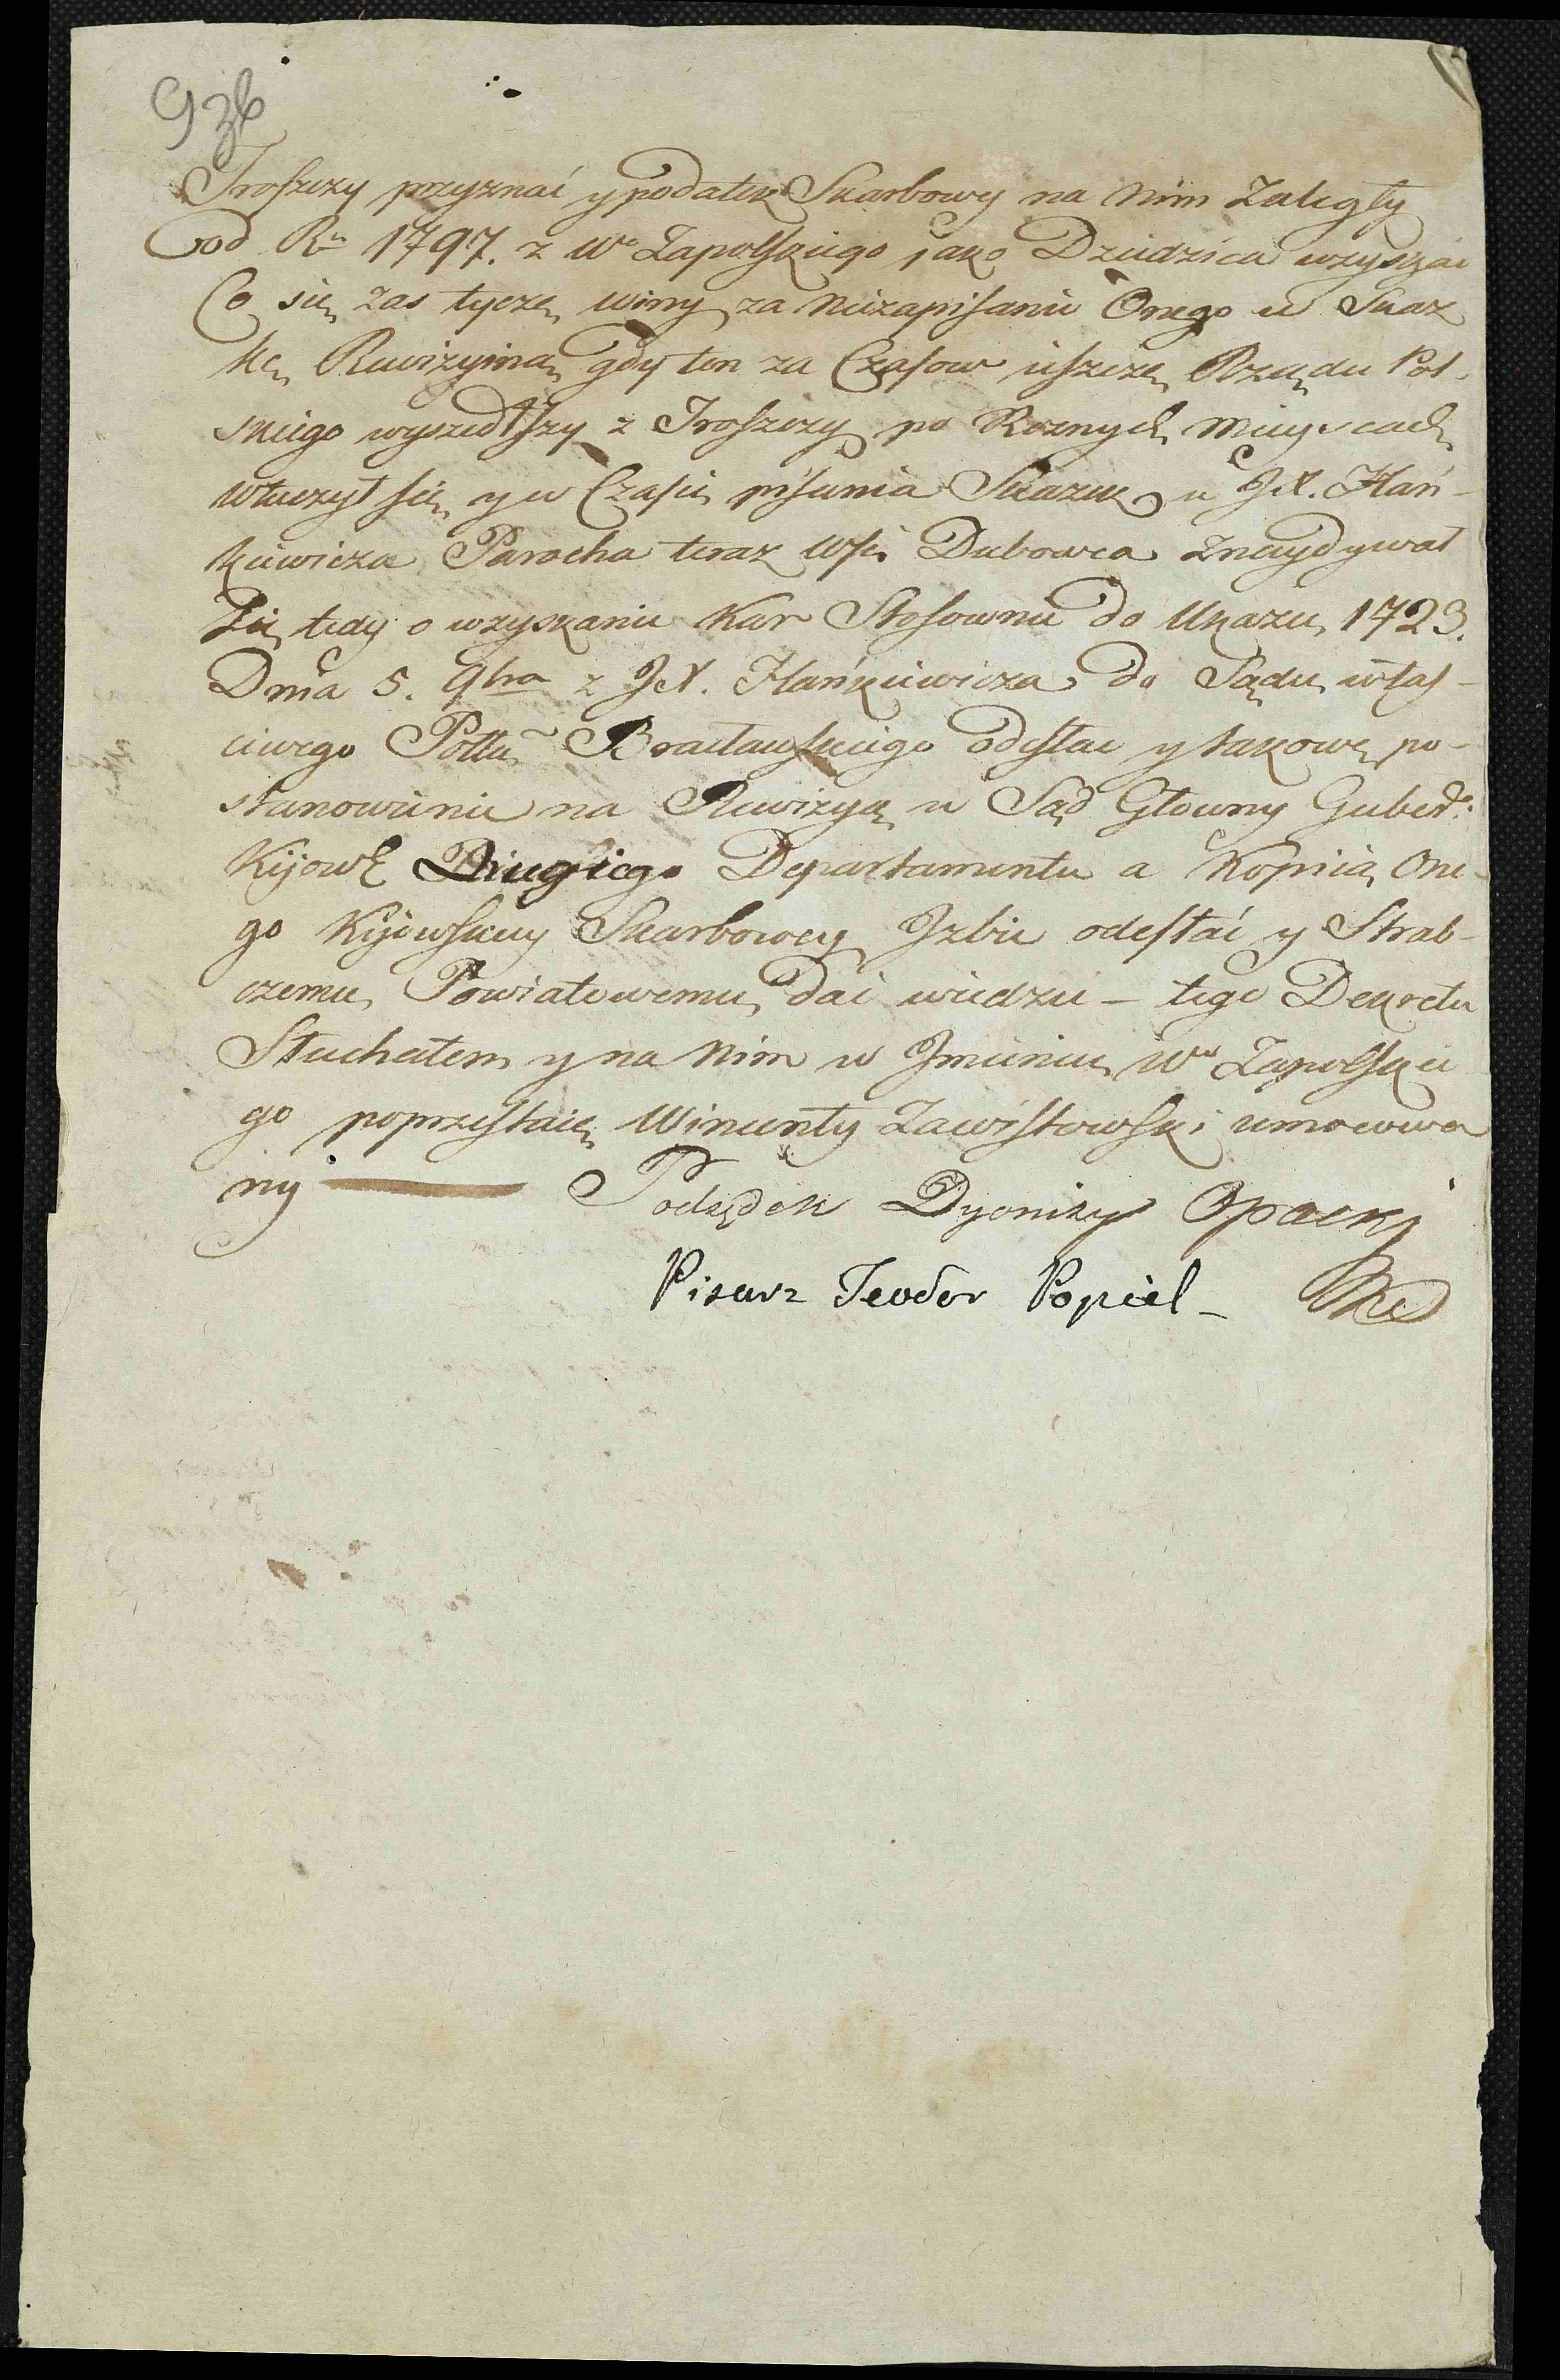 93b
Troszczy przyznać y podatek Skarbowy na nim Zaległy
od Ru 1797. z Wo Zapolskiego jako Dziedzica wzyskać
Co się zas tycze winy za niezapisanie Onego w Skaz
kę Rewizyiną gdy ten za Czasow ieszcze Rządu Pol-
skiego wyszedłszy z Troszczy po Roznych mieyscach
włuczył się y w Czasie pisania Skazek u JX. Hań-
kiewicza Parocha teraz Wsi Dubowca znaydywał
się tedy o wzyskanie Kar Stosownie do Ukazu 1723.
Dnia 5. 9bra z JX. Hańkiewicza do Sądu właś-
ciwego Pottu Bracławskiego odesłac y takowe po-
stanowienie na Rewizyą w Sąd Głowny Guber:
Kijow: Drugiego Departamentu a Kopią one-
go Kijowskiey Skarbowey Jzbie odesłać y Strab-
czemu Powiatowemu dać wiedzie – tego Dekretu
Słuchałem y na nim w Jmieniu Wo Zapolskie
go poprzestaię Wincenty Zawistowski umocowa
ny ——— Podsędek Dyonizy Opacki
Pisarz Teodor Popiel –